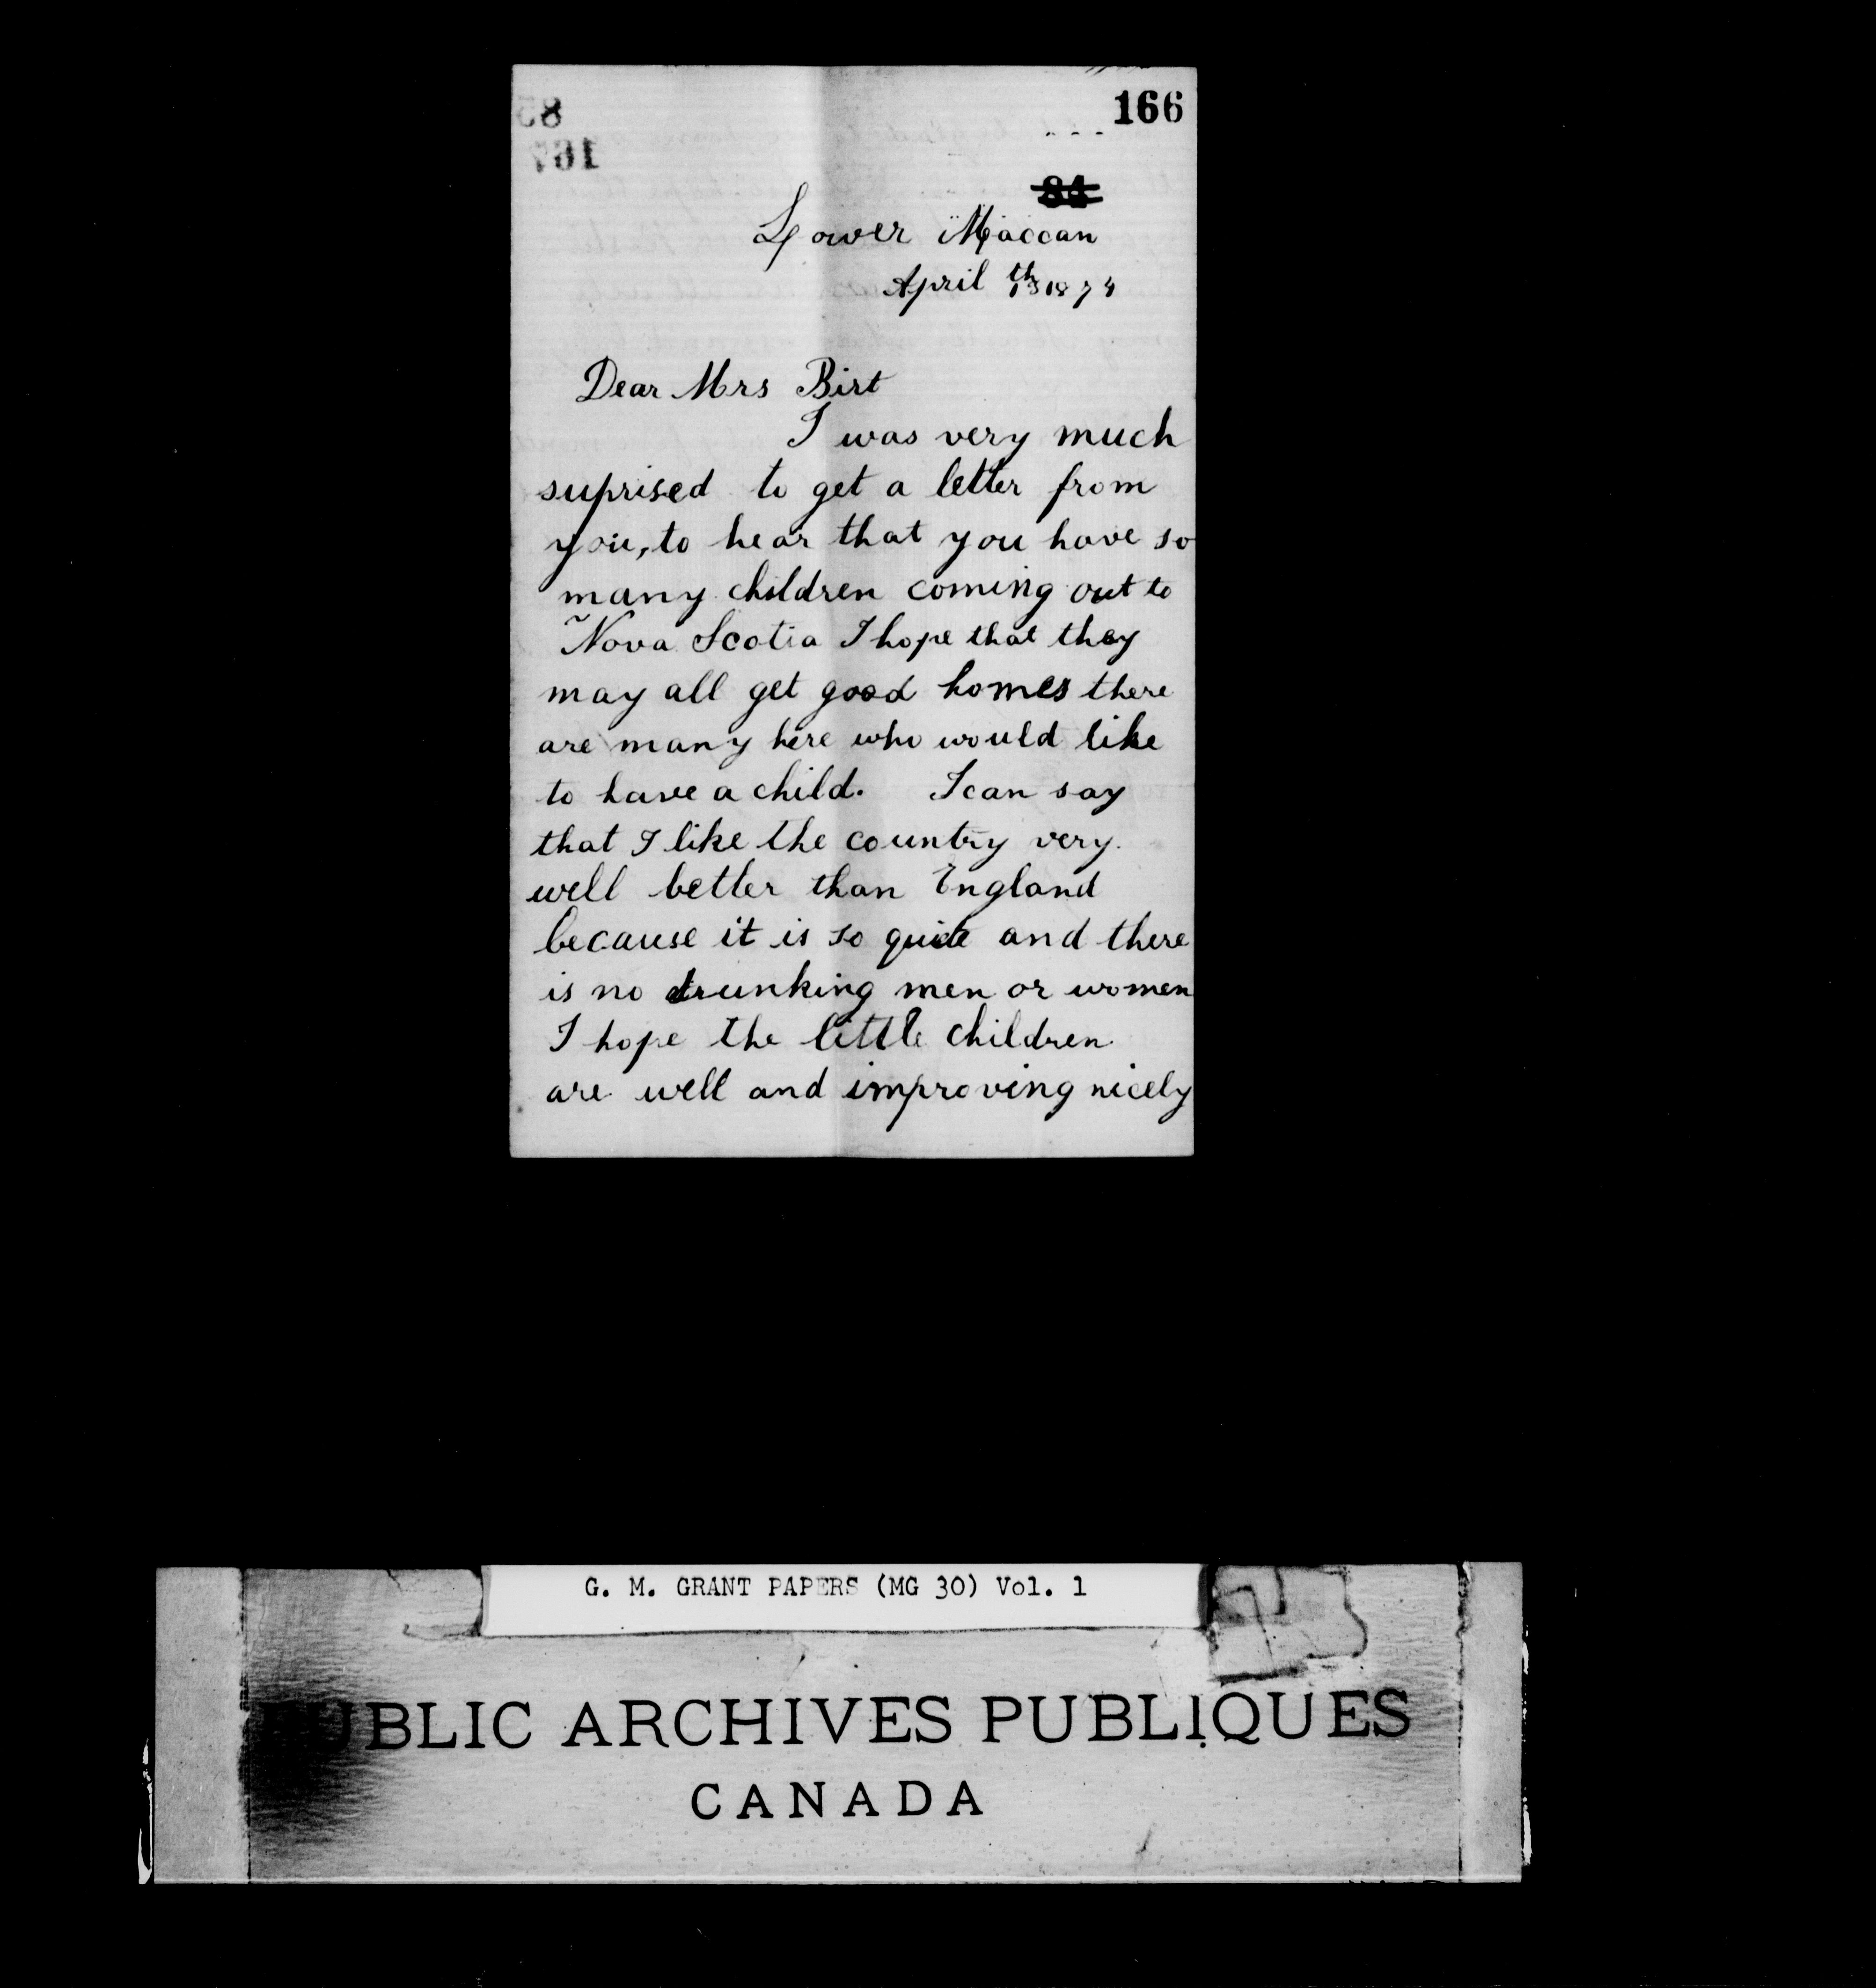 166
84
Lower Maccan
April 13th 1874
Dear Mrs Birt
I was very much
suprised to get a letter from
you, to hear that you have so
many children coming out to
Nova Scotia I hope that they
may all get good homes there
are many here who would like
to have a child. I can say
that I like the country very
well better than England
because it is so quite and there
is no drunking men or women
I hope the little children
are well and improving nicely
G. M. GRANT PAPERS (MG 30) Vol. 1
PUBLIC ARCHIVES PUBLIQUES
CANADA